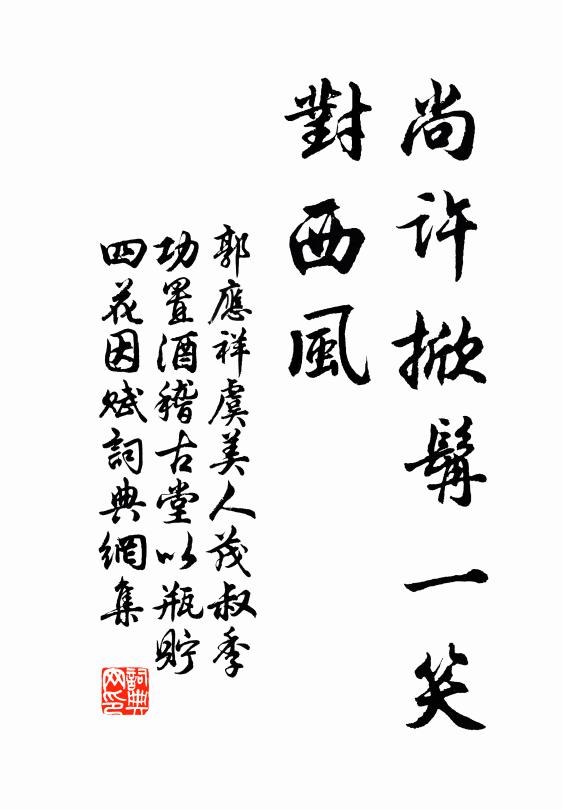 尚許掀髯一笑
對西風
郭應祥虞美人茂叔季
功置酒稽古堂以瓶貯
四花因赋詞典網集
詞典
网印